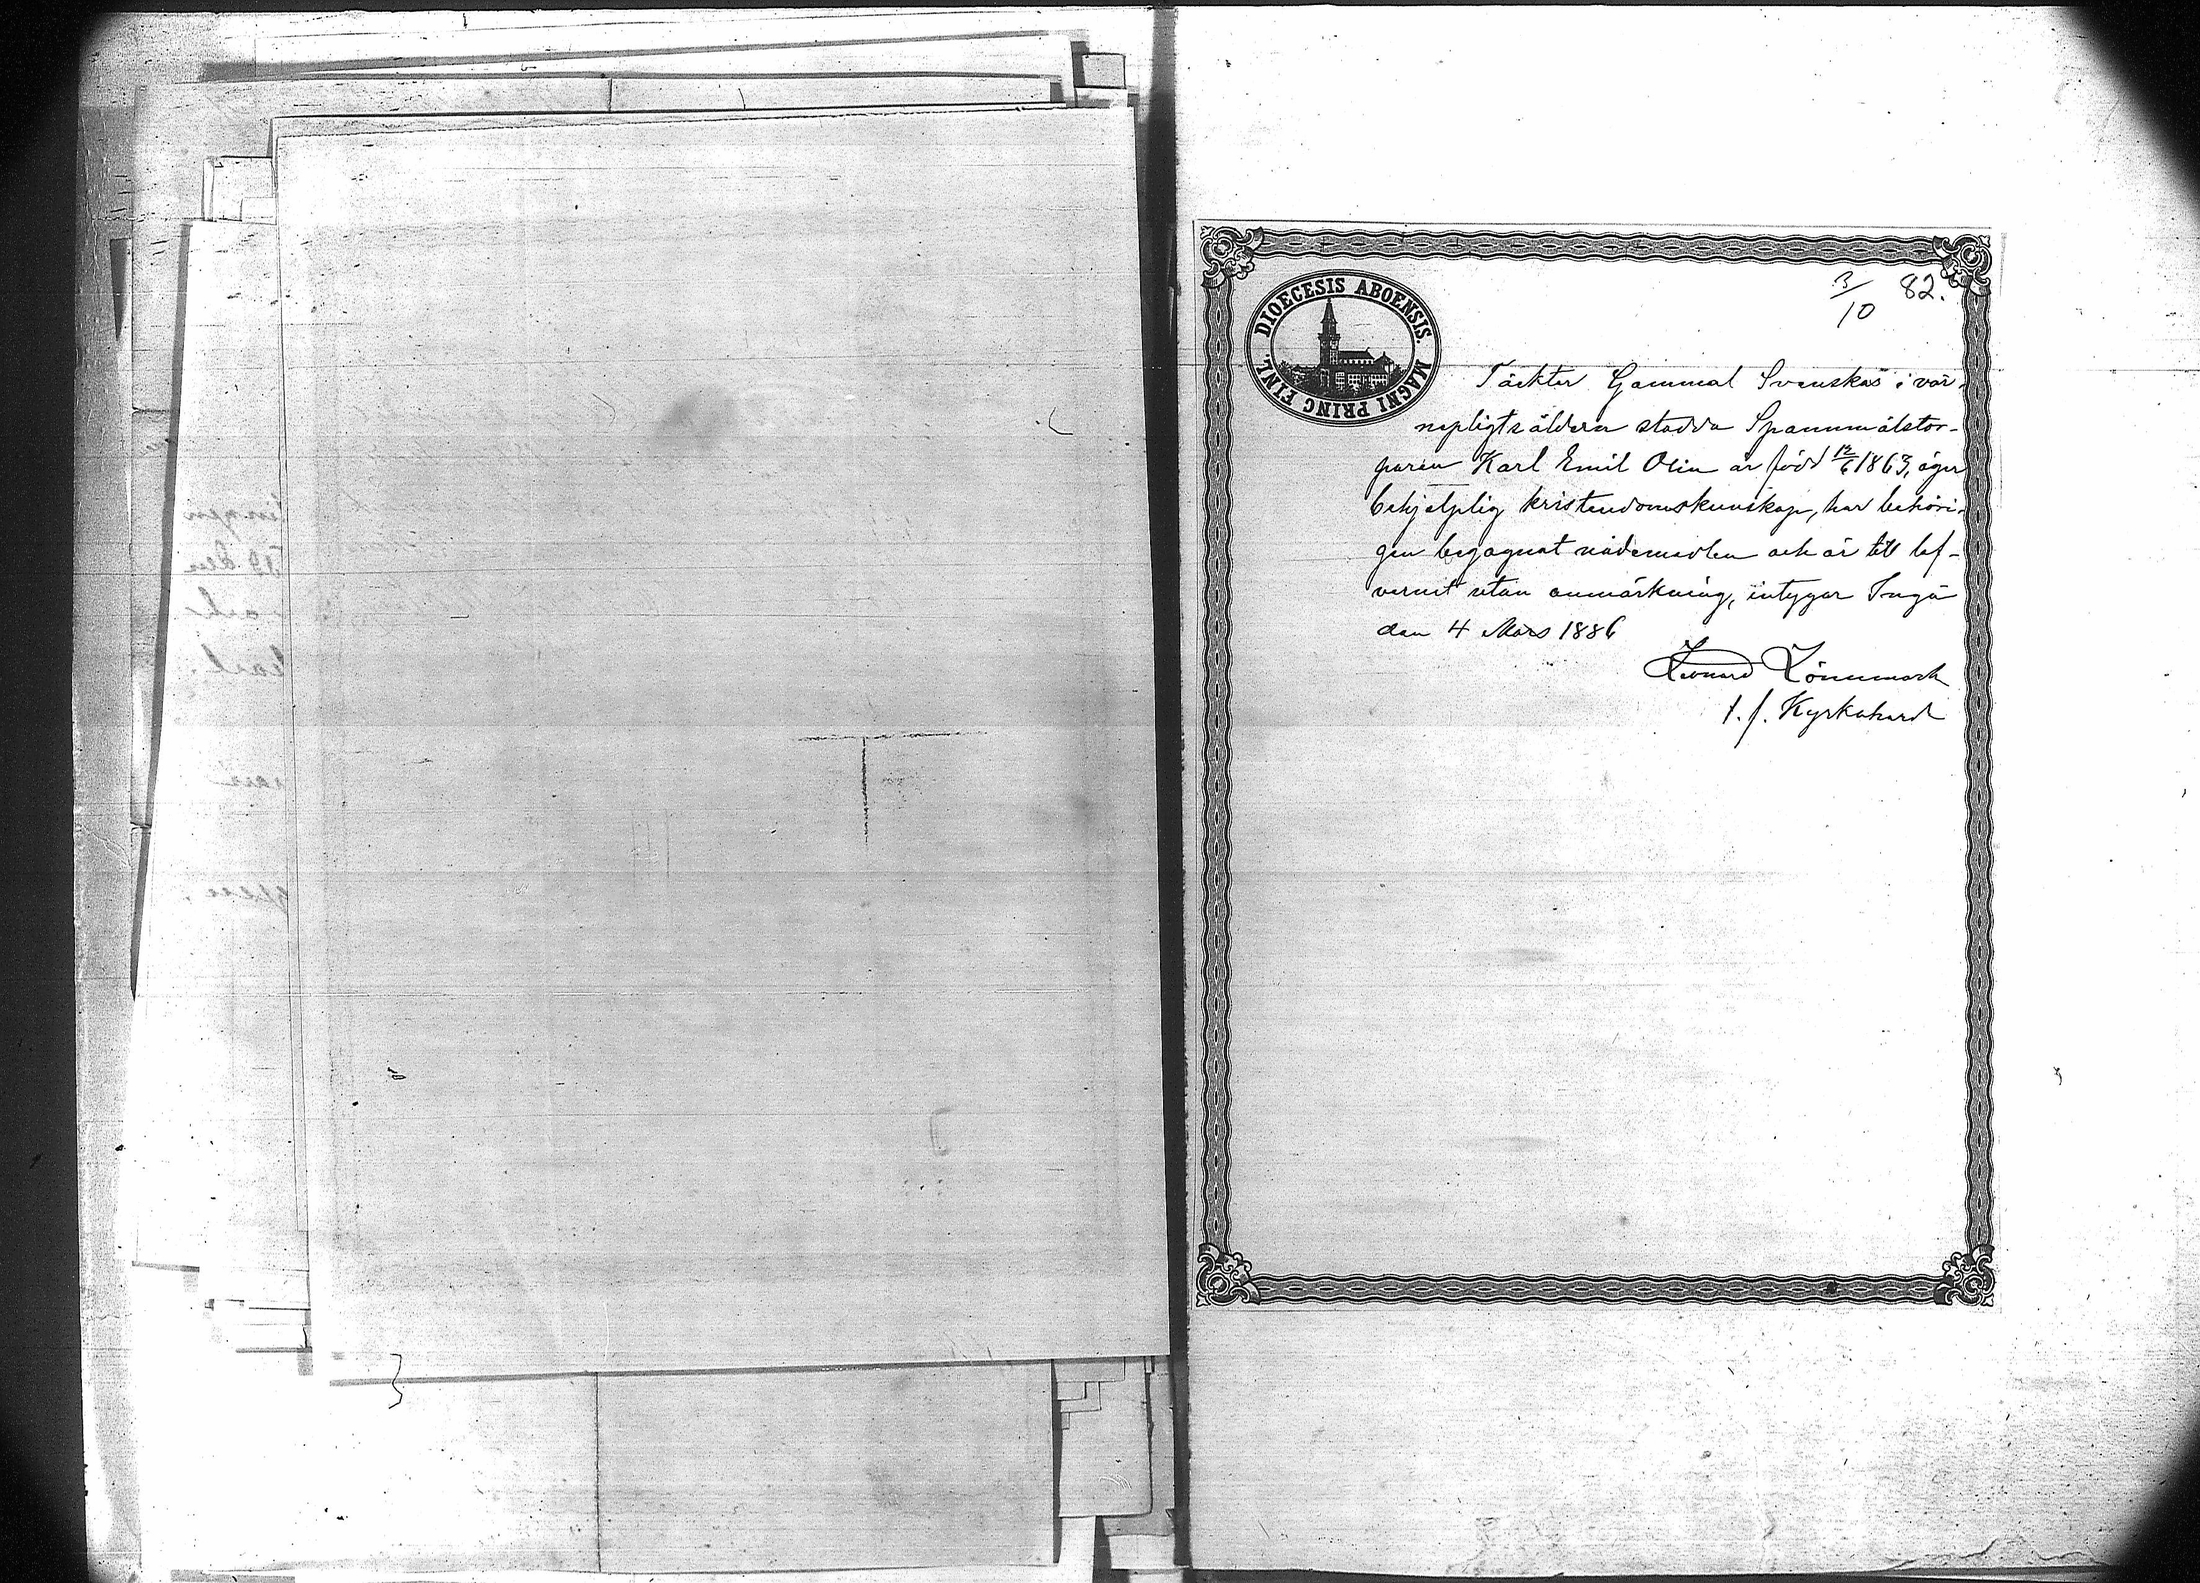 3/10 82.
DIOECESIS ABOENSIS. MAGNI PRINC FINL.
Täckter Gammal Svenskas i vär-
nepligtsåldern stadda Spannmålstor-
paren Karl Emil Olin är född 12/6 1863, äger
behjelplig kristendomskunskap, har behöri-
gen begagnat nådemedlen och är till lef-
vernet utan anmärkning, intygar Ingå
den 4 Mars 1886
Leonard Lönnmark
t. f. Kyrkoherd